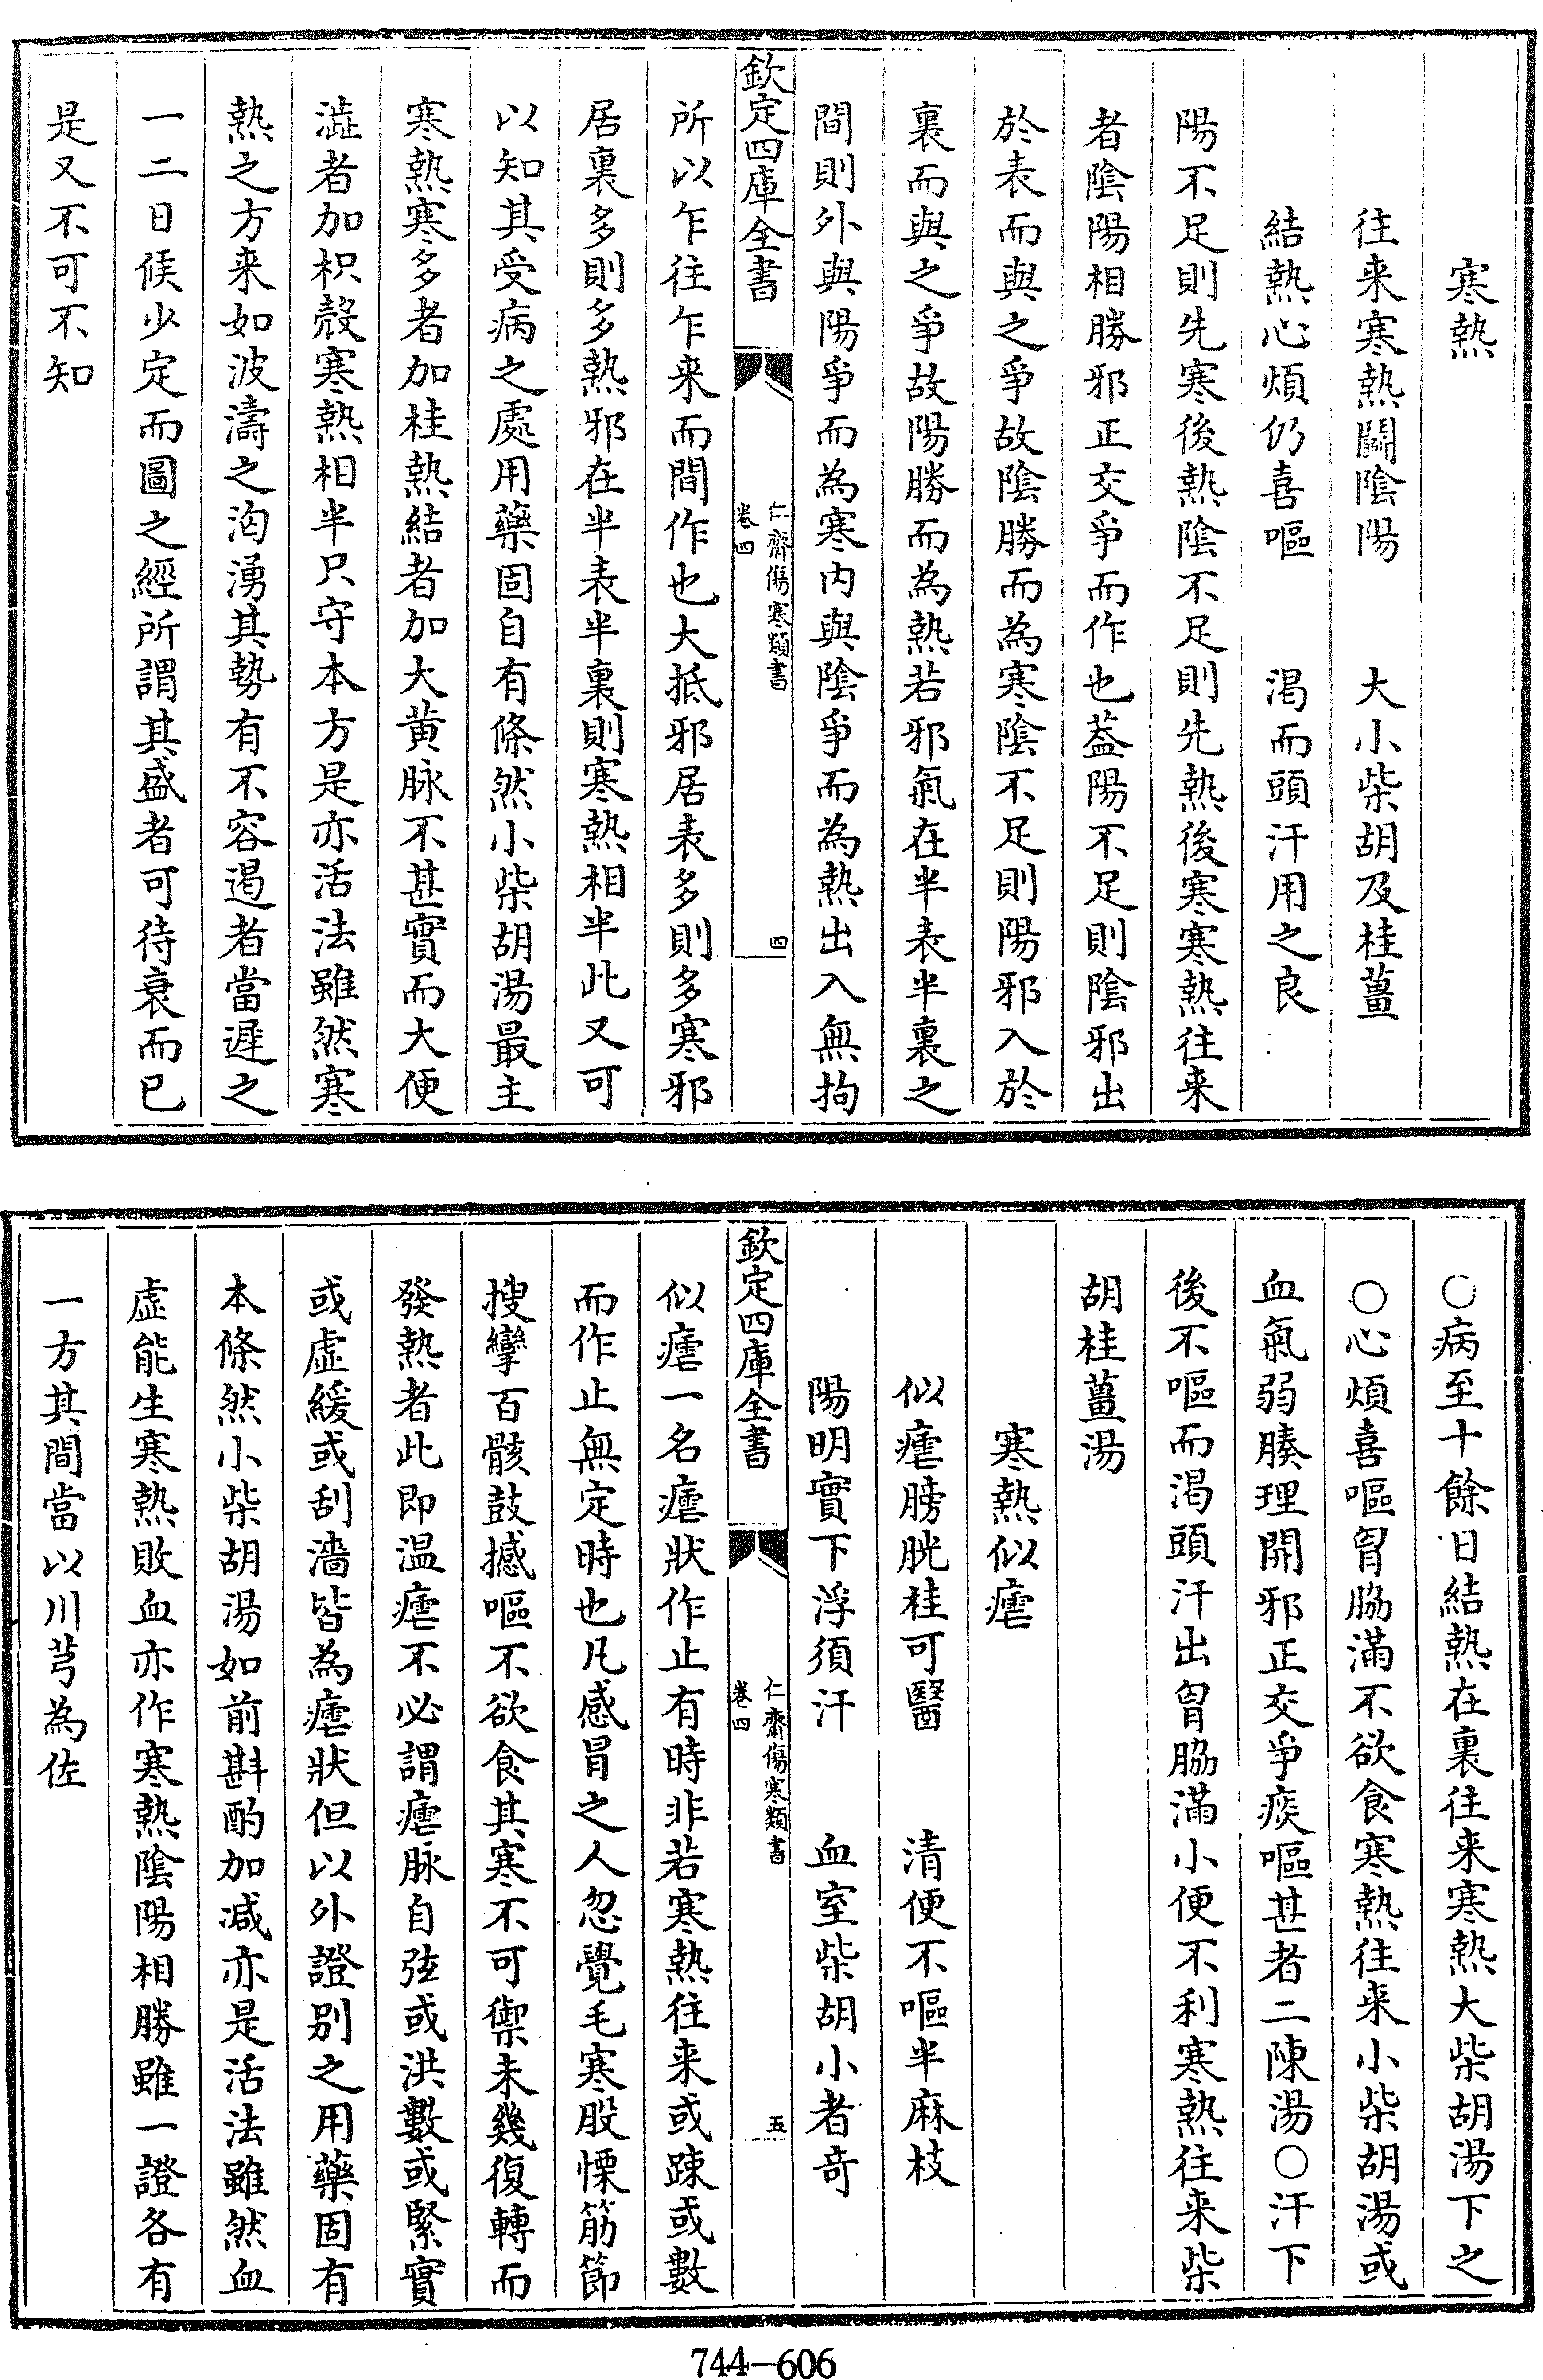 寒熱
往来寒熱鬭陰陽　大小柴胡及桂薑
結熱心煩仍喜嘔　渴而頭汗用之良
陽不足則先寒後熱陰不足則先熱後寒寒熱往来
者陰陽相勝邪正交爭而作也葢陽不足則陰邪出
於表而與之爭故陰勝而為寒陰不足則陽邪入於
裏而與之爭故陽勝而為熱若邪氣在半表半裏之
間則外與陽爭而為寒内與陰爭而為熱出入無拘
欽定四庫全書
仁齋傷寒類書
卷四
四
所以乍往乍来而間作也大抵邪居表多則多寒邪
居裏多則多熱邪在半表半裏則寒熱相半此又可
以知其受病之處用藥固自有條然小柴胡湯最主
寒熱寒多者加桂熱結者加大黄脉不甚實而大便
澁者加枳殼寒熱相半只守本方是亦活法雖然寒
熱之方来如波濤之洶湧其勢有不容遏者當遲之
一二日候少定而圖之經所謂其盛者可待衰而已
是又不可不知
○病至十餘日結熱在裏往来寒熱大柴胡湯下之
○心煩喜嘔胷脇滿不欲食寒熱往来小柴胡湯或
血氣弱腠理開邪正交爭痰嘔甚者二陳湯○汗下
後不嘔而渴頭汗出胷脇滿小便不利寒熱往来柴
胡桂薑湯
寒熱似瘧
似瘧膀胱桂可醫　清便不嘔半麻枝
陽明實下浮須汗　血室柴胡小者竒
欽定四庫全書
仁齋傷寒類書
卷四
五
似瘧一名瘧狀作止有時非若寒熱往来或踈或數
而作止無定時也凡感冒之人忽覺毛寒股慄筋節
搜攣百骸鼓撼嘔不欲食其寒不可禦未幾復轉而
發熱者此即温瘧不必謂瘧脉自弦或洪數或緊實
或虛緩或刮濇皆為瘧狀但以外證别之用藥固有
本條然小柴胡湯如前斟酌加减亦是活法雖然血
虛能生寒熱敗血亦作寒熱陰陽相勝雖一證各有
一方其間當以川芎為佐
744-606